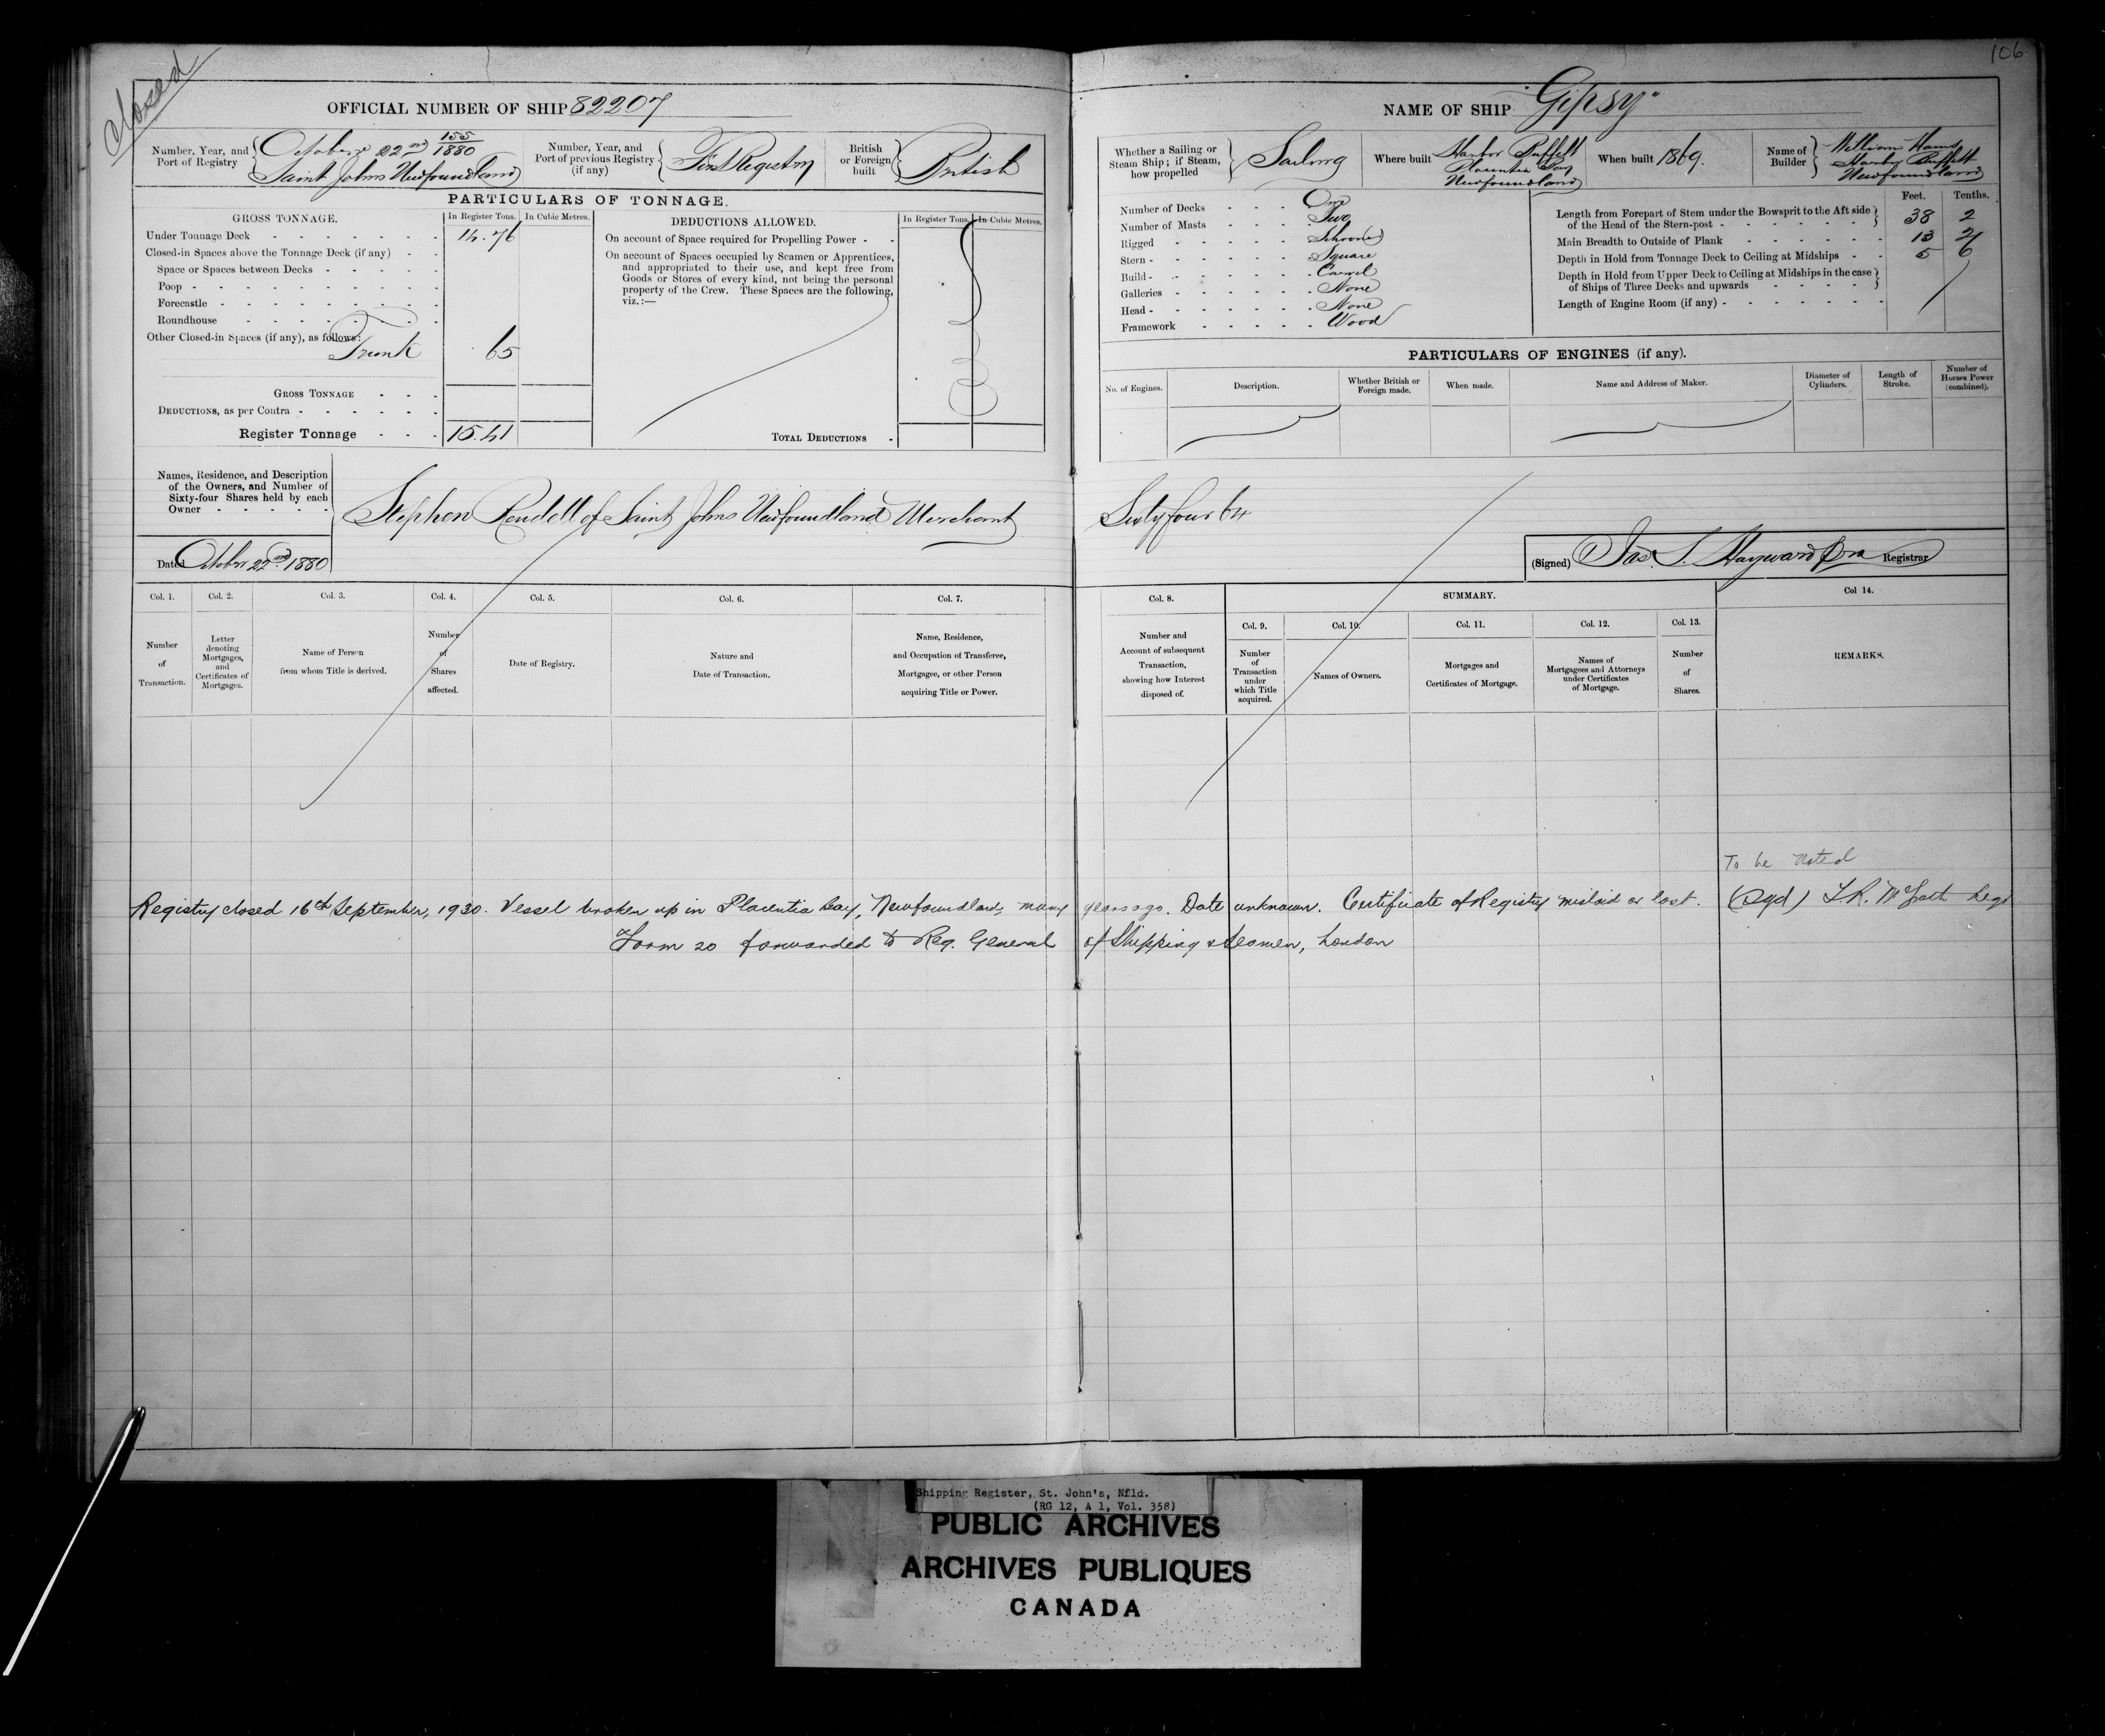 Closed
106
OFFICIAL NUMBER OF SHIP 82207
NAME OF SHIP "Gipsy"
Number, Year, and Port of Registry
155/1880
October 22nd
Saint Johns Newfoundland
Number, Year, and Port of previous Registry (if any)
First Registry
British or Foreign built
British
Whether a Sailing or Steam Ship; if Steam, how propelled
Sailing
Where built
Harbor Buffett
Placentia Bay
Newfoundland
When built 1869.
Name of Builder
William
Harbor Buffett
Newfoundland
PARTICULARS OF TONNAGE.
GROSS TONNAGE.
In Register Tons.
In Cubic Metres.
Under Tonnage Deck 14.76
Closed-in Spaces above the Tonnage Deck (if any)
Space or Spaces between Decks
Poop
Forecastle
Roundhouse
Other Closed-in Spaces (if any), as follows:
Trunk .65
GROSS TONNAGE
DEDUCTIONS, as per Contra
Register Tonnage 15.41
DEDUCTIONS ALLOWED.
In Register Tons.
In Cubic Metres.
On account of Space required for Propelling Power
On account of Spaces occupied by Seamen or Apprentices,
and appropriated to their use, and kept free from
Goods or Stores of every kind, not being the personal
property of the Crew. These Spaces are the following,
viz.:—
TOTAL DEDUCTIONS
Number of Decks One
Number of Masts Two
Rigged Schooner
Stern Square
Build Carvel
Galleries None
Head None
Framework Wood
Feet. Tenths.
Length from Forepart of Stem under the Bowsprit to the Aft side
of the Head of the Stern-post 38 2
Main Breadth to Outside of Plank 13 2
Depth in Hold from Tonnage Deck to Ceiling at Midships 5 6
Depth in Hold from Upper Deck to Ceiling at Midships in the case
of Ships of Three Decks and upwards
Length of Engine Room (if any)
PARTICULARS OF ENGINES (if any).
No. of Engines.
Description.
Whether British or Foreign made.
When made.
Name and Address of Maker.
Diameter of Cylinders.
Length of Stroke.
Number of Horses Power (combined).
Names, Residence, and Description
of the Owners, and Number of
Sixty-four Shares held by each
Owner
Stephen Rendell of Saint Johns Newfoundland Merchant Sixty four 64
Dated October 22nd 1880
(Signed) Jas. S. Hayward Registrar
Col. 1.
Number of Transaction.
Col. 2.
Letter denoting Mortgages, and Certificates of Mortgages.
Col. 3.
Name of Person from whom Title is derived.
Col. 4.
Number of Shares affected.
Col. 5.
Date of Registry.
Col. 6.
Nature and Date of Transaction.
Col. 7.
Name, Residence, and Occupation of Transferee, Mortgagee, or other Person acquiring Title or Power.
Col. 8.
Number and Account of subsequent Transaction, showing how Interest disposed of.
SUMMARY.
Col. 9.
Number of Transaction under which Title acquired.
Col. 10.
Names of Owners.
Col. 11.
Mortgages and Certificates of Mortgage.
Col. 12.
Names of Mortgagees and Attorneys under Certificates of Mortgage.
Col. 13.
Number of Shares.
Col 14.
REMARKS.
To be noted
Registry closed 16th September, 1930. Vessel broken up in Placentia Bay, Newfoundland, many years ago. Date unknown. Certificate of Registry mislaid or lost. (Sgd) Regr
Form 20 forwarded to Reg. General of Shipping & Seamen, London
Shipping Register, St. John's, Nfld.
(RG 12, A 1, Vol. 358)
PUBLIC ARCHIVES
ARCHIVES PUBLIQUES
CANADA